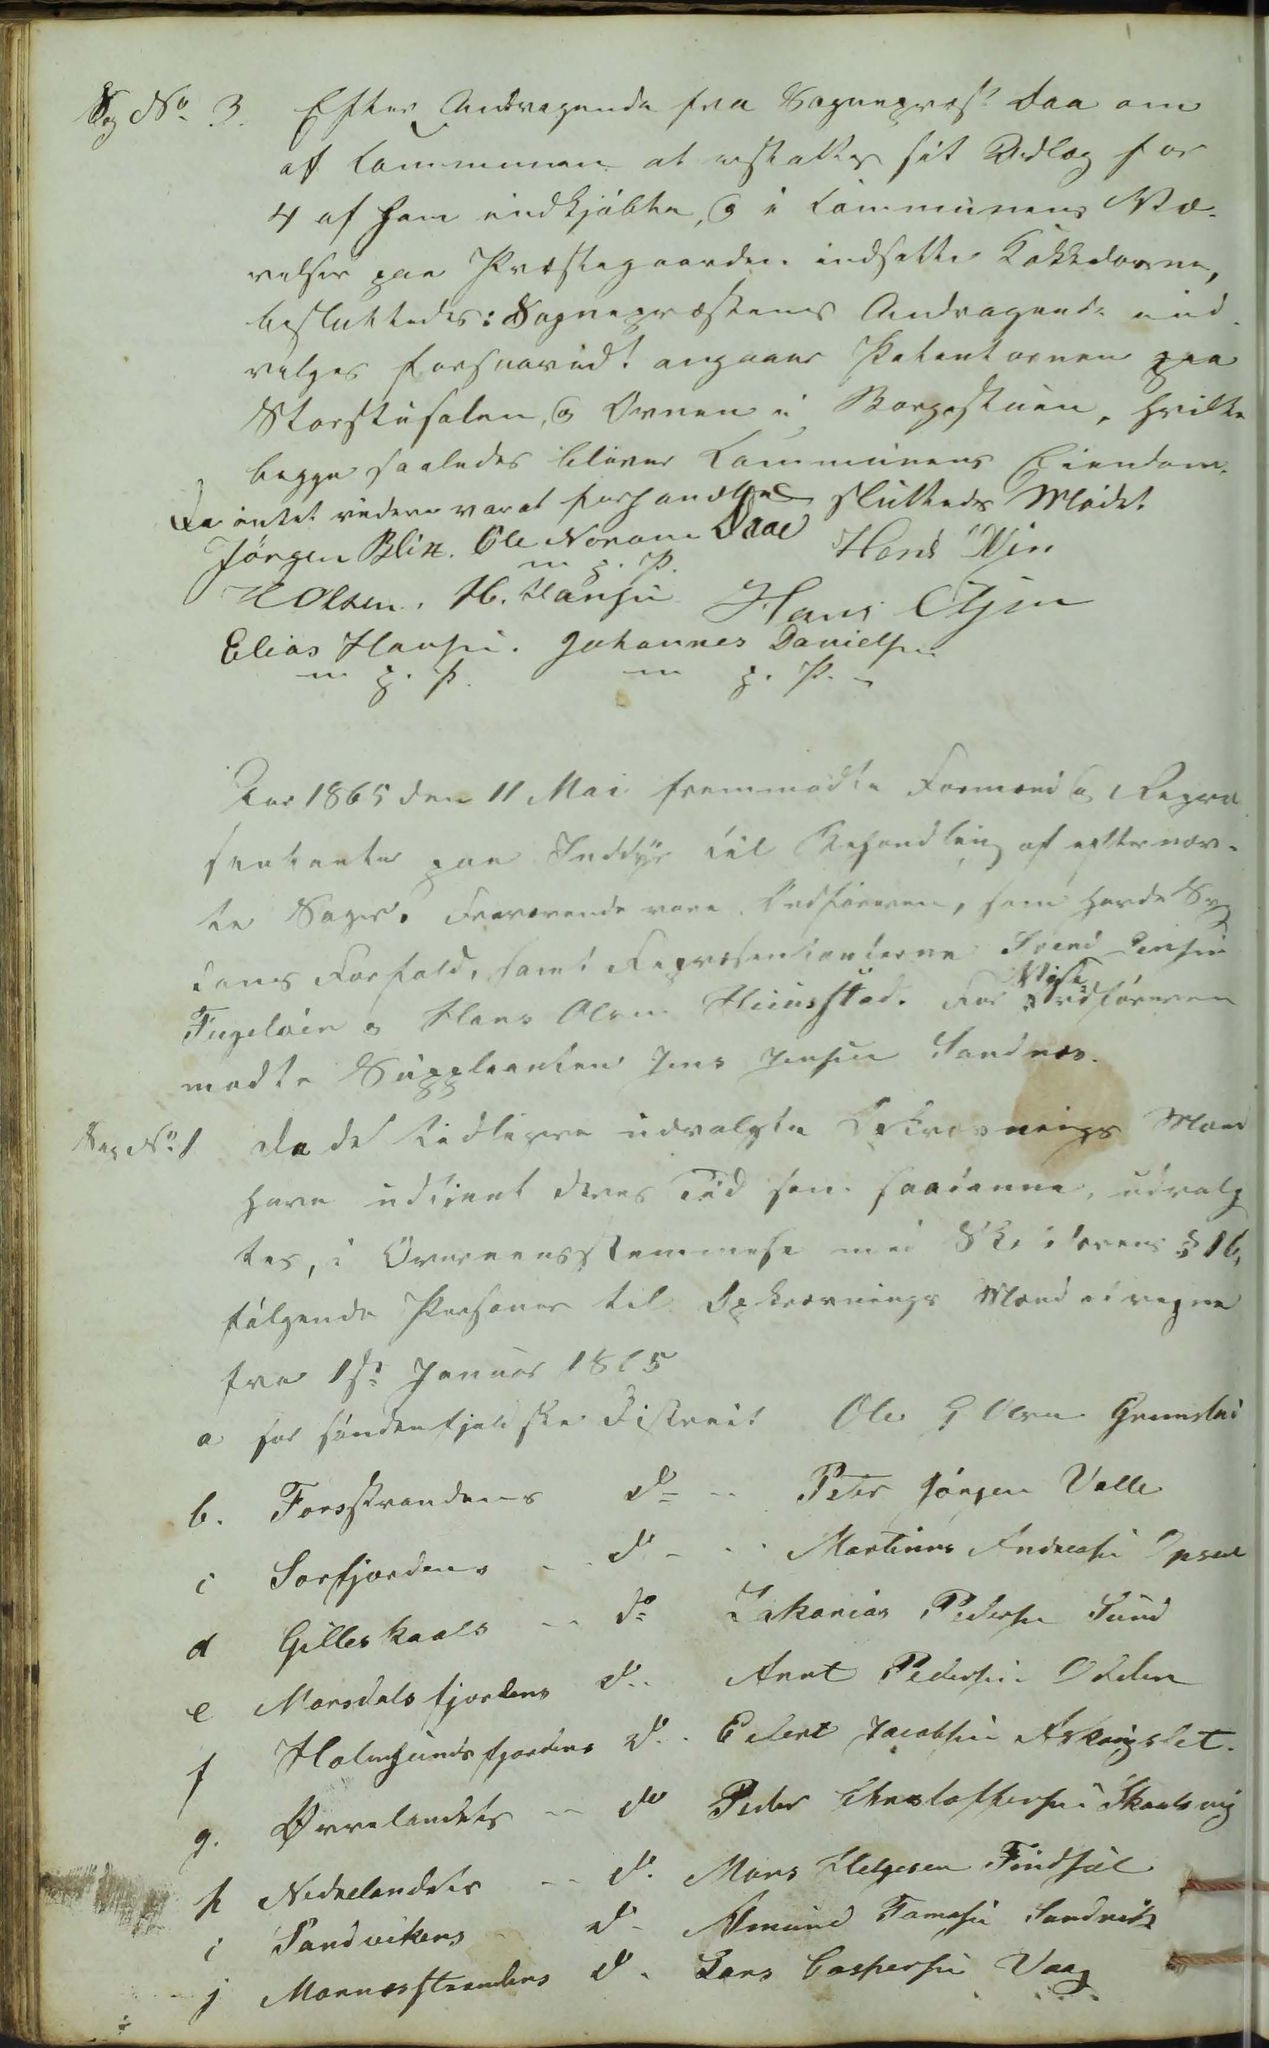 Sag No 3. Efter Andragende fra Sognepræst Daa om
af Communen at erstattes sit Udlæg for
4 af ham indkjöbte, og i Communens Væ-
relser paa Præstegaarden indsatte Kakkelovne,
besluttedes: Sognepræstens Andragende ind-
vilges forsaavidt angaaer Patentovnen paa
Storstusalen, og Ovnen i Borgestuen, hvilke
begge saaledes bliver Communens Eiendom.
Da intet videre var at forhandle sluttedes Mödet.
Jörgen Blix. Ole Noram Daae Hans
m. p. P.
H Olsen. H. Hansen Hans
Elias Hansen. Johannes Danielsen
m. p. P. m. p. P.
Aar 1865 den 11 Mai fremmødte Formænd og Repræ
sentanter paa Inddyr til Behandling af efternævn-
te Sager. Fraværende vare Ordföreren, som havde Syg
doms Forfald, samt Repræsentanterne Svend Jensen
Fugelöien og Hans Olsen Huusstad. For Vise
Ordföreren
mødte Suppleanten Jens Jensen Sandnæs.
Sag No 1 Da de tidligere udvalgte Opkrævnings Mænd
have udtjent deres Tid som saadanne, udvalg
tes, i Overeensstemmelse med Sk. lovens § 16,
fölgende Personer til Opkrævnings Mænd at regne
fra 1ste Januar 1865
a for söndenfjeldske Distrikt Ole G Olsen Grimstad
b. Forsstrandens do Peter Jörgen Valle
c Sorfjordens do Martinus Andreasen Opsal
d Gilleskaals do Zakarias Pedersen Sund
e Morsdalsfjordens do Arnt Pedersen Odden
f Holmsundsfjordens do Edert Jacobsen
g. Øvrelandets do Peder Christoffersen Skaalsvig
h Nedrelandets do Mons Helgesen Findsæt
i Sandvikens do Amund Tomasen Sandvik
j Mornæsstrandens do Lars Caspersen Vaag